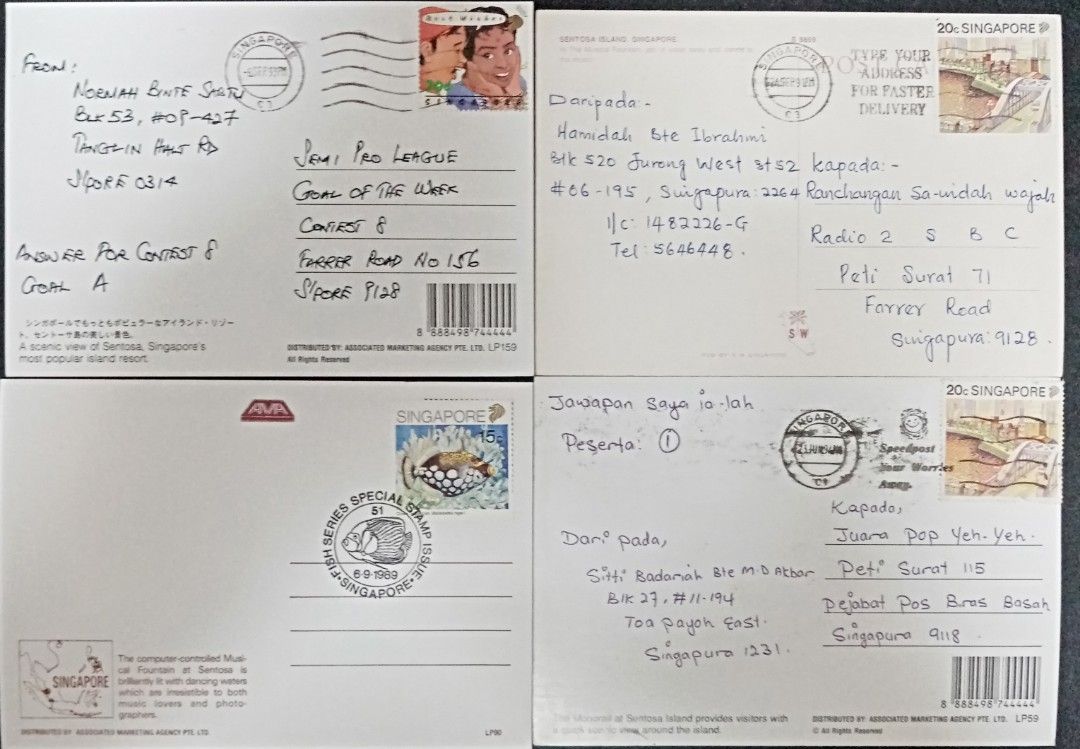 FROM:
NORMAH BINTE
BLK 53, #09-427
TANGLIN HALT RD
S'PORE 0314
SINGAPORE
Best Wishes
20c
SINGAPORE
SEMI PRO LEAGUE
GOAL OF THE WEEK
CONTEST 8
FARRER ROAD NO 156
S'PORE 9128
ANSWER FOR CONTEST 8
GOAL A
シンガポールでもっともポピュラーなアイランド・リゾー
ト、セントーサ島の美しい景色。
A scenic view of Sentosa, Singapore's
most popular island resort.
8 888498 744444
DISTRIBUTED BY: ASSOCIATED MARKETING AGENCY PTE. LTD. LP159
All Rights Reserved
SENTOSA ISLAND, SINGAPORE
SINGAPORE
TYPE YOUR
ADDRESS
FOR FASTER
DELIVERY
20c SINGAPORE
Daripada:-
Hamidah Bte Ibrahmi
Blk 520 Jurong West st 52
#06-195, Singapura: 2264
I/c: 1482226-G
Tel: 5646448.
Kapada:-
Ranchangan Sa-indah wajah
Radio 2 S B C
Peti Surat 71
Farrer Road
Singapura: 9128.
S W
AMA
SINGAPORE
15c
FISH SERIES SPECIAL STAMP ISSUE
51
6-9-1989
SINGAPORE
SINGAPORE
The computer-controlled Musi-
cal Fountain at Sentosa is
brilliantly lit with dancing waters
which are irresistible to both
music lovers and photo-
graphers.
DISTRIBUTED BY: ASSOCIATED MARKETING AGENCY PTE. LTD.
LP90
Jawapan saya ia-lah
Peserta: 1
SINGAPORE
Speedpost
Your Worries
Away.
20c SINGAPORE
Dari pada,
Sitti Badariah Bte M.D Akbar
Blk 27, #11-194
Toa payoh East.
Singapura 1231.
Kapada,
Juara Pop Yeh-Yeh.
Peti Surat 115
Pejabat Pos Bras Basah
Singapura 9118.
8 888498 744444
The Monorail at Sentosa Island provides visitors with
a quick scenic view around the island.
DISTRIBUTED BY: ASSOCIATED MARKETING AGENCY PTE. LTD. LP59
© All Rights Reserved